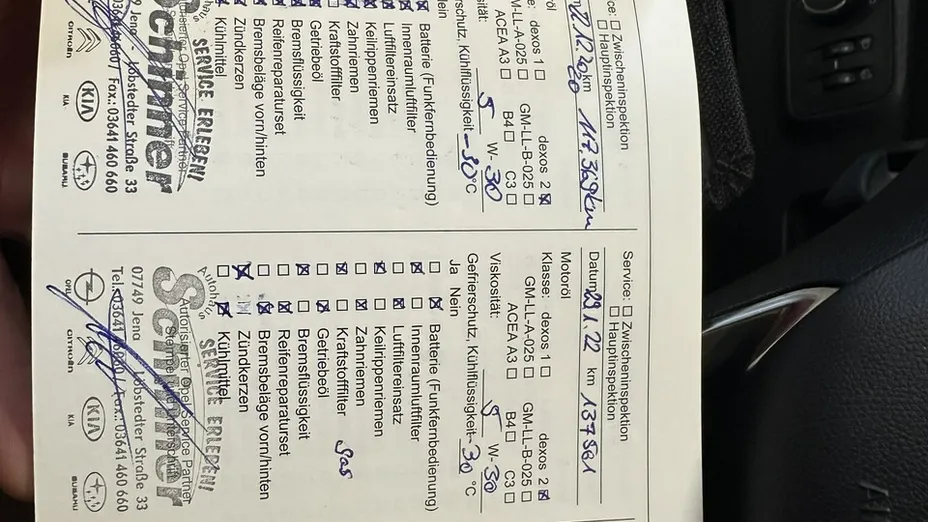 ce: ☐ Zwischeninspektion
☐ Hauptinspektion
2.12.2020 km 117.369km
öl
dexos 1 ☐ dexos 2 ☒
M-LL-A-025 ☐ GM-LL-B-025 ☐
ACEA A3 ☐ B4 ☐ C3 ☐
sität: 5 W-30
rschutz, Kühlflüssigkeit -30 °C
ein
☒ Batterie (Funkfernbedienung)
Innenraumluftfilter
Luftfiltereinsatz
Keilrippenriemen
Zahnriemen
Kraftstofffilter
Getriebeöl
Bremsflüssigkeit
Reifenreparaturset
Bremsbeläge vorn/hinten
Zündkerzen
Kühlmittel
SERVICE ERLEBEN!
Schinner
Jena
Löbstedter Straße 33
Fax.: 03641 460 660
CITROËN KIA SUBARU
Service: ☐ Zwischeninspektion
☐ Hauptinspektion
Datum 29.1.22 km 137501
Motoröl
Klasse: dexos 1 ☐ dexos 2 ☒
GM-LL-A-025 ☐ GM-LL-B-025 ☐
ACEA A3 ☐ B4 ☐ C3 ☐
Viskosität: 5 W-30
Gefrierschutz, Kühlflüssigkeit -30 °C
Ja Nein
☐ ☒ Batterie (Funkfernbedienung)
☒ ☐ Innenraumluftfilter
☐ ☒ Luftfiltereinsatz
☒ ☐ Keilrippenriemen
☐ ☒ Zahnriemen
☒ ☐ Kraftstofffilter Gas
☐ ☒ Getriebeöl
☒ ☐ Bremsflüssigkeit
☐ ☒ Reifenreparaturset
☐ ☒ Bremsbeläge vorn/hinten
☒ Zündkerzen
☐ ☒ Kühlmittel
Autohaus SERVICE ERLEBEN!
Schinner
Autorisierter Opel Service Partner
07749 Jena Löbstedter Straße 33
Fax.: 03641 460 660
OPEL CITROËN KIA SUBARU